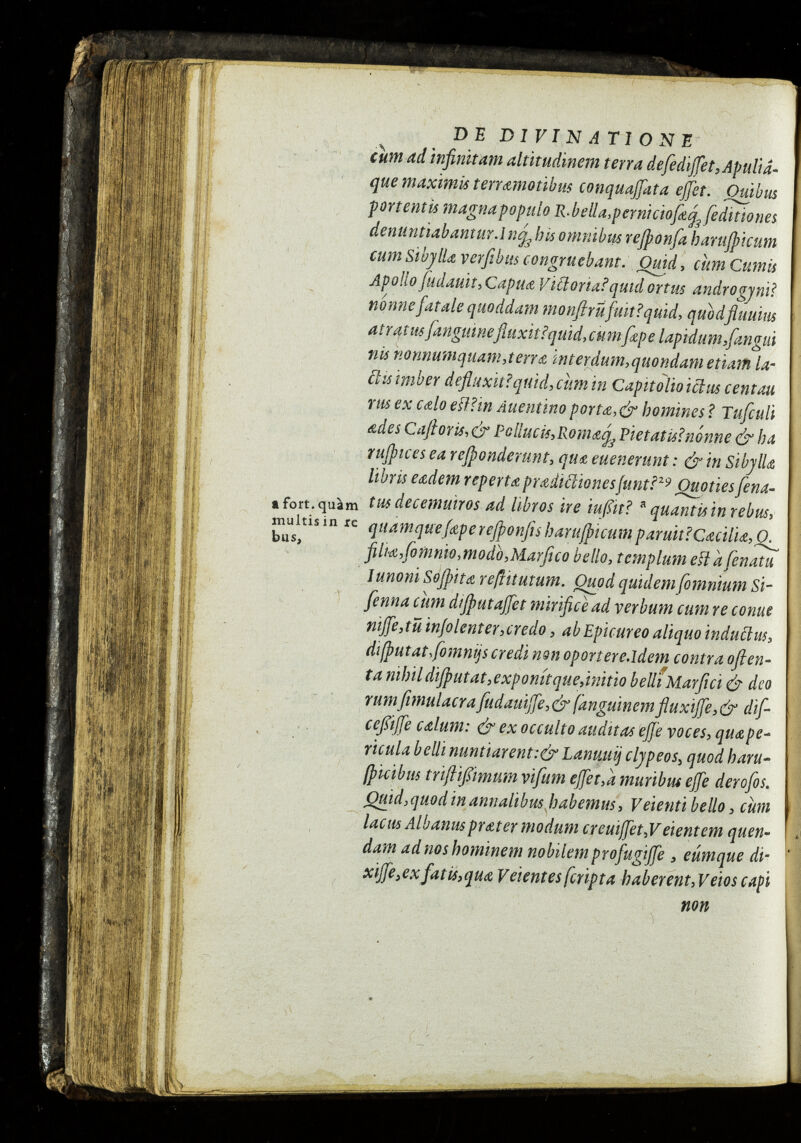 DE DIVINATIONE
cùm ad infinitam altitudinem terra defediſſet, Apuliá-
que maximis terræmotibus conquaſſata eſſet. Quibus
portentis magna populo R. bella, pernicioſæq; ſeditiones
denuntiabantur. Inq; his omnibus reſponſa haruſpicum
cum Sibyllæ verſibus congruebant. Quid, cùm Cumis
Apollo ſudauit, Capuæ Victoria? quid ortus androgyni?
nónne fatale quoddam monſtrū fuit? quid, quòd fluuius
atratus ſanguine fluxit? quid, cùm ſæpe lapidum, ſangui
nis nonnumquam, terræ interdum, quondam etiam la-
ctis imber defluxit? quid, cùm in Capitolio ictus centau
rus ex cælo eſt? in Auentino portæ, & homines? Tuſculi
ædes Caſtoris, & Pollucis, Romæq; Pietatis? nónne & ha
ruſpices ea reſponderunt, quæ euenerunt: & in Sibyllæ
libris eædem repertæ prædictiones ſunt?²⁹ Quoties ſena-
tus decemuiros ad libros ire iuſsit? ᵃ quantis in rebus,
quamque ſæpe reſponſis haruſpicum paruit? Cæciliæ, Q.
filiæ, ſomnio, modò, Marſico bello, templum eſt à ſenatu
Iunoni Soſpitæ reſtitutum. Quod quidem ſomnium Si-
ſenna cùm diſputaſſet mirificè ad verbum cum re conue
niſſe, tū inſolenter, credo, ab Epicureo aliquo inductus,
diſputat, ſomnijs credi non oportere. Idem contra oſten-
ta nihil diſputat, exponítque, initio belli Marſici & deo
rum ſimulacra ſudauiſſe, & ſanguinem fluxiſſe, & diſ-
ceſsiſſe cælum: & ex occulto auditas eſſe voces, quæ pe-
ricula belli nuntiarent: & Lanuuij clypeos, quod haru-
ſpicibus triſtiſsimum viſum eſſet, à muribus eſſe deroſos.
Quid, quod in annalibus habemus, Veienti bello, cùm
lacus Albanus præter modum creuiſſet, Veientem quen-
dam ad nos hominem nobilem profugiſſe, eúmque di-
xiſſe, ex fatis, quæ Veientes ſcripta haberent, Veios capi
non
a fort. quàm
multis in re
bus,